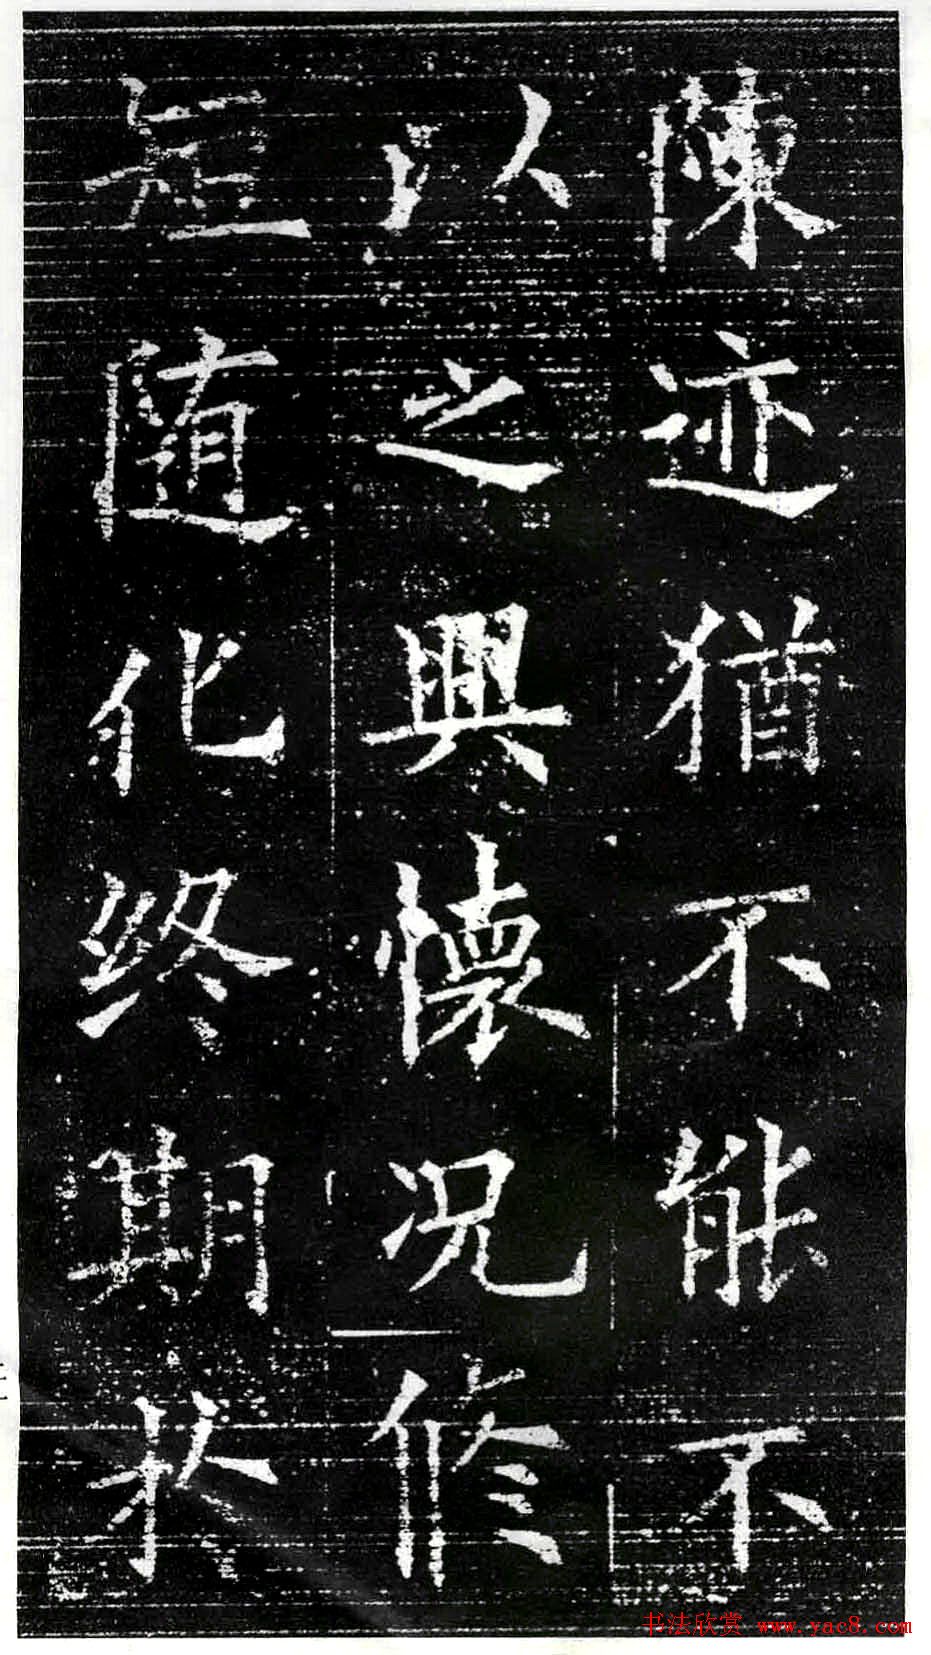 陳迹猶不能不
以之興懷况修
短随化終期於
书法欣赏 www.yac8.com